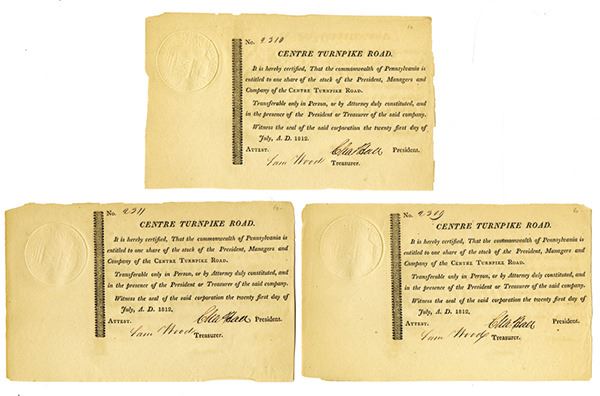 No. 2210
CENTRE TURNPIKE ROAD.
It is hereby certified, That the commonwealth of Pennsylvania is
entitled to one share of the stock of the President, Managers and
Company of the CENTRE TURNPIKE ROAD.
Transferable only in Person, or by Attorney duly constituted, and
in the presence of the President or Treasurer of the said company.
Witness the seal of the said corporation the twenty first day of
July, A. D. 1812.
ATTEST. President.
Sam Wood Treasurer.
No. 2211
CENTRE TURNPIKE ROAD.
It is hereby certified, That the commonwealth of Pennsylvania is
entitled to one share of the stock of the President, Managers and
Company of the CENTRE TURNPIKE ROAD.
Transferable only in Person, or by Attorney duly constituted, and
in the presence of the President or Treasurer of the said company.
Witness the seal of the said corporation the twenty first day of
July, A. D. 1812.
ATTEST. President.
Sam Wood Treasurer.
No. 2209
CENTRE TURNPIKE ROAD.
It is hereby certified, That the commonwealth of Pennsylvania is
entitled to one share of the stock of the President, Managers and
Company of the CENTRE TURNPIKE ROAD.
Transferable only in Person, or by Attorney duly constituted, and
in the presence of the President or Treasurer of the said company.
Witness the seal of the said corporation the twenty first day of
July, A. D. 1812.
ATTEST. President.
Sam Wood Treasurer.